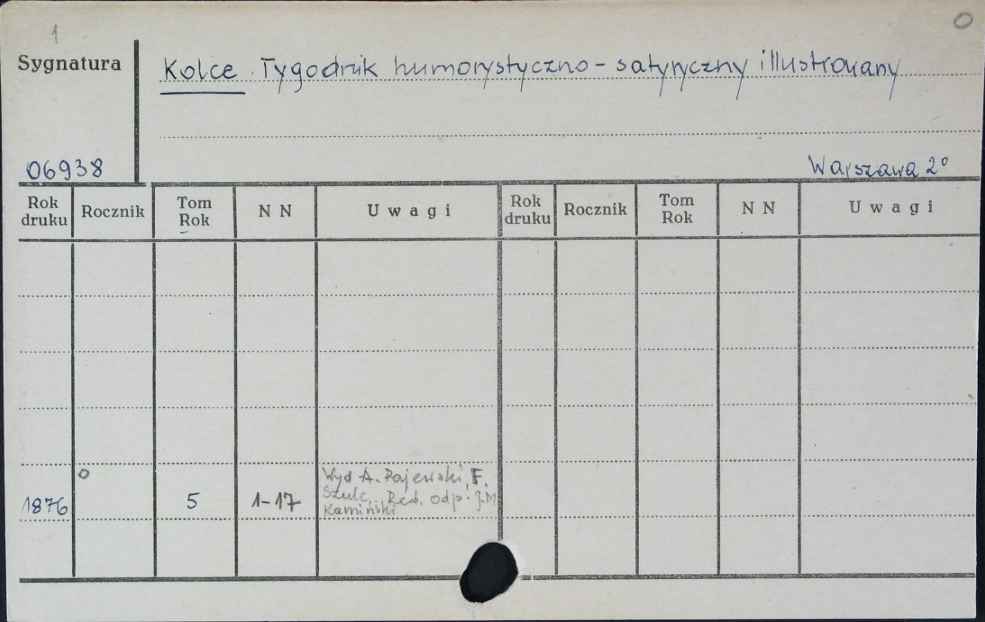 1
0
Sygnatura
Kolce Tygodnik humorystyczno-satyryczny illustrowany
06938
Warszawa 2°
Rok druku Rocznik Tom Rok N N Uwagi Rok druku Rocznik Tom Rok N N Uwagi
o
Wyd A. Pajewski, F.
Szulc, Red. odp. J.M
1876 5 1-17 Kamiński